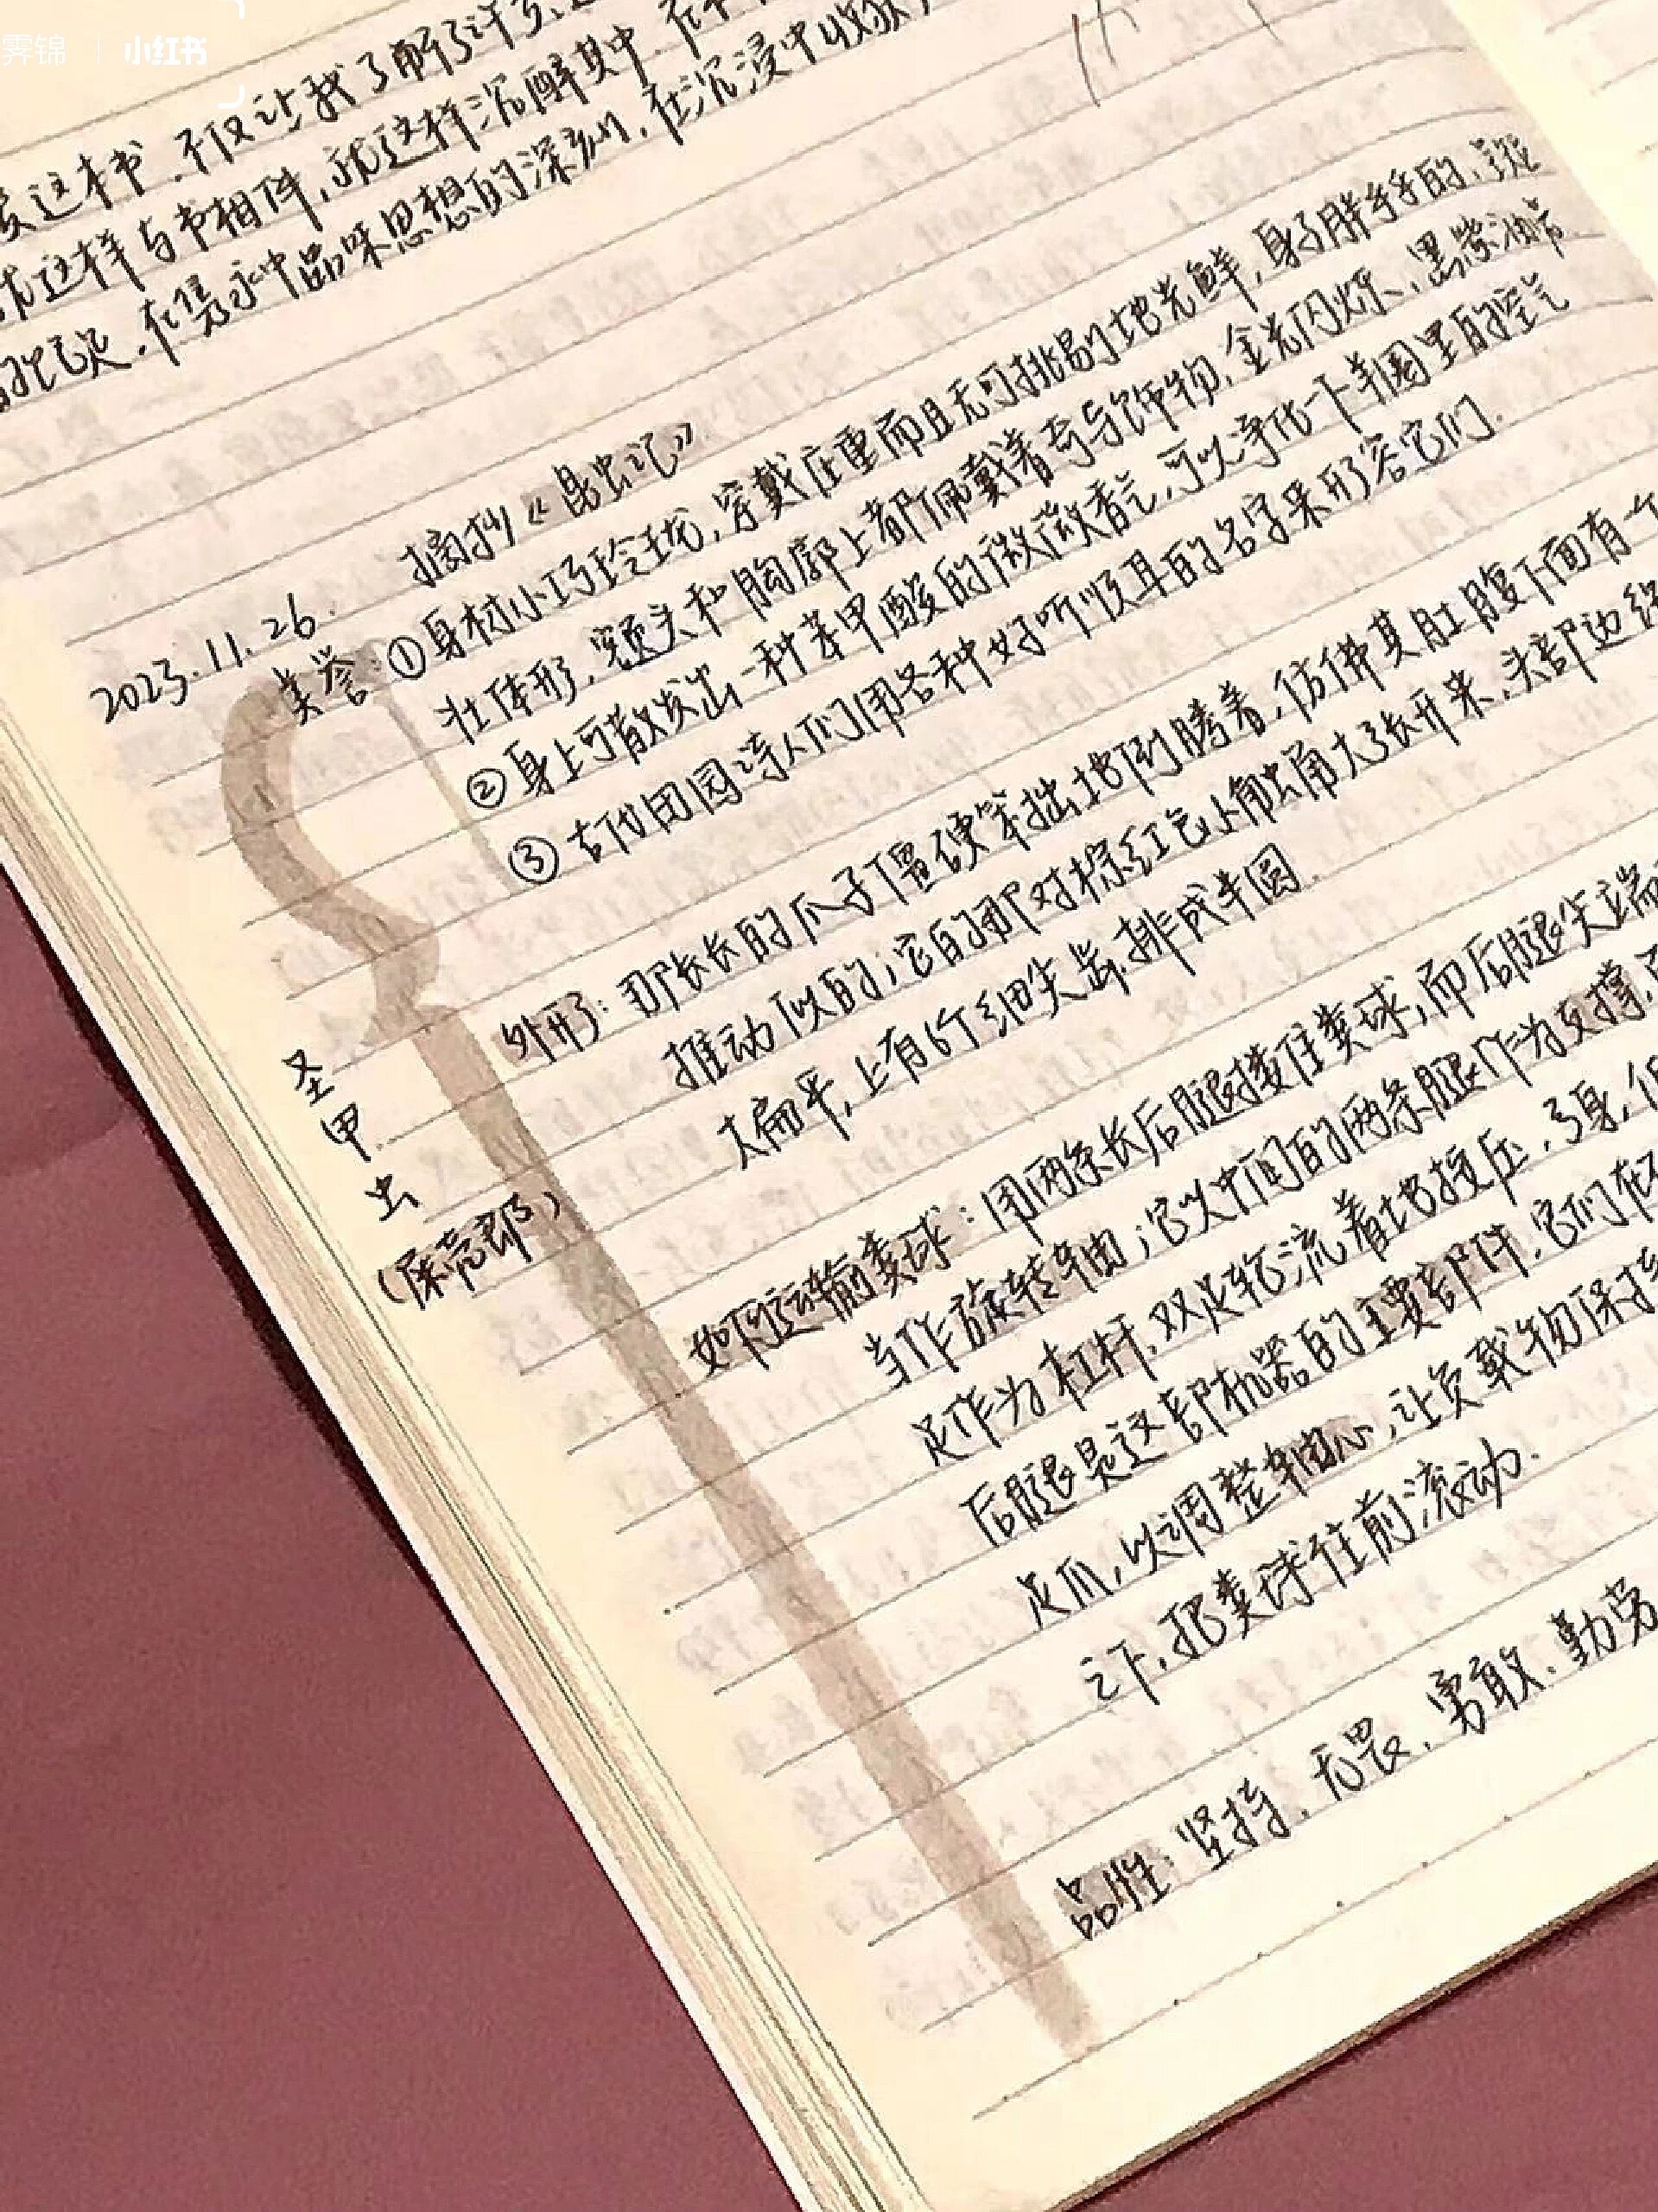 霁锦 | 小红书
这本书.不仅让我了解了许多
就这样与书相伴,就这样沉醉其中.
.在隽永中品味思想的深刻,在沉浸中收获
2023.11.26. 摘抄《昆虫记》
美誉:①身材小巧玲珑,穿戴庄重而且无可挑剔地光鲜,身子胖乎乎的,
壮体形,额头和胸廓上都佩戴着奇异饰物,金光闪烁、黑紫油
②身上可散发出一种苯甲酸的微微香气,可以净化一下羊圈里的空气
③古代田园诗人们用各种好听顺耳的名字来形容它们.
外形:那长长的爪子僵硬笨拙地倒腾着,仿佛其肚腹下面有一个
推动似的;它的那对棕红色小触角大张开来,头部边缘
大扁平,上有6个细尖齿,排成半圆.
圣
甲
虫
(屎壳郎)
如何运输粪球:用两条长后腿搂住粪球,而后腿尖端
当作旋转轴;它以中间的两条腿作为支撑,
足作为杠杆,双足轮流着地按压,弓身,
后腿是这部机器的主要部件.它们在
足爪,以调整轴心,让负载物保持
之下,把粪球往前滚动.
品性:坚持、无畏、勇敢、勤劳